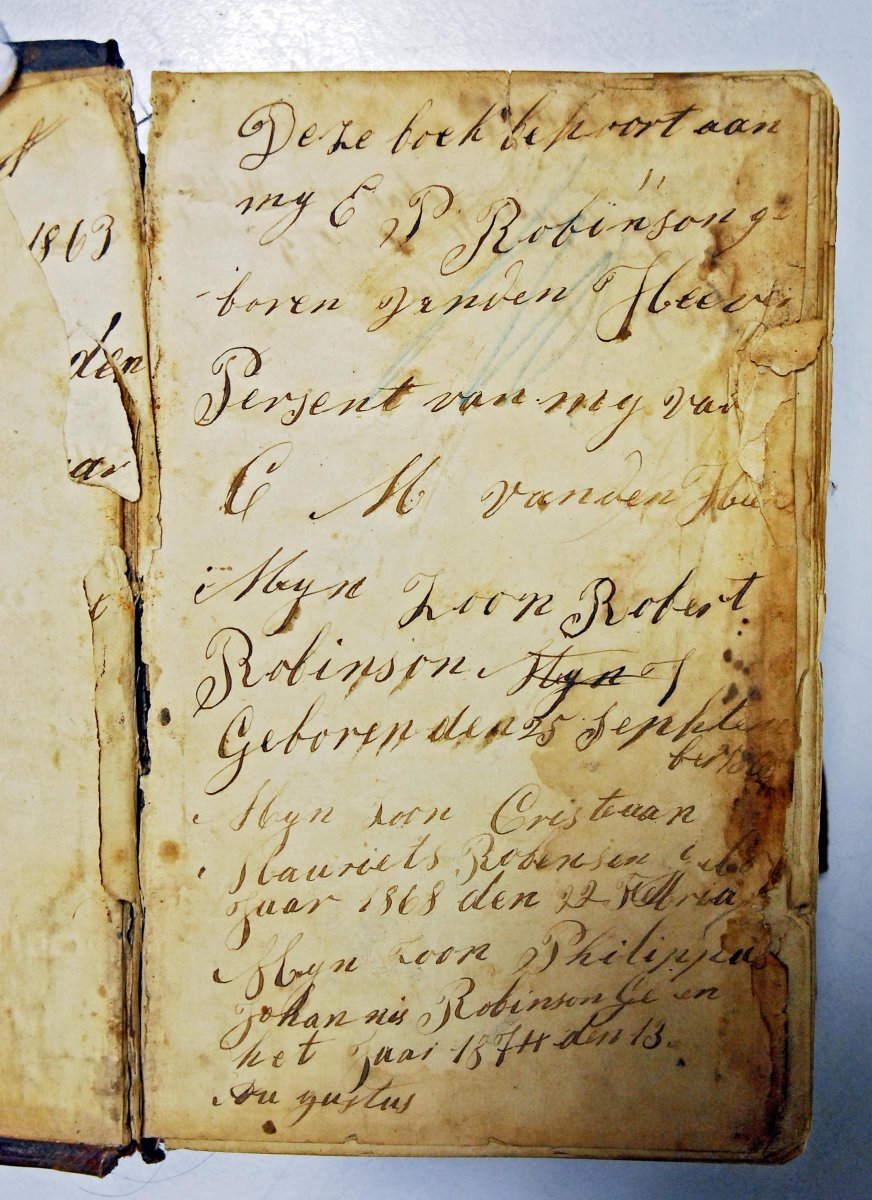 1863
den
ar
Deze boek behoort aan
my E P Robinson ge
boren vanden Heever
Persent van my vad
C M vanden Heev
Myn Zoon Robert
Robinson Myn
Geboren den 25 Sephtem
ber
Myn Zoon Cristeaan
Mauriets Robensen
Jaar 1868 den 22 Febria
Myn Zoon Philippus
Johannis Robinson Ge en
het Jaar 1874 den 13
Augustus